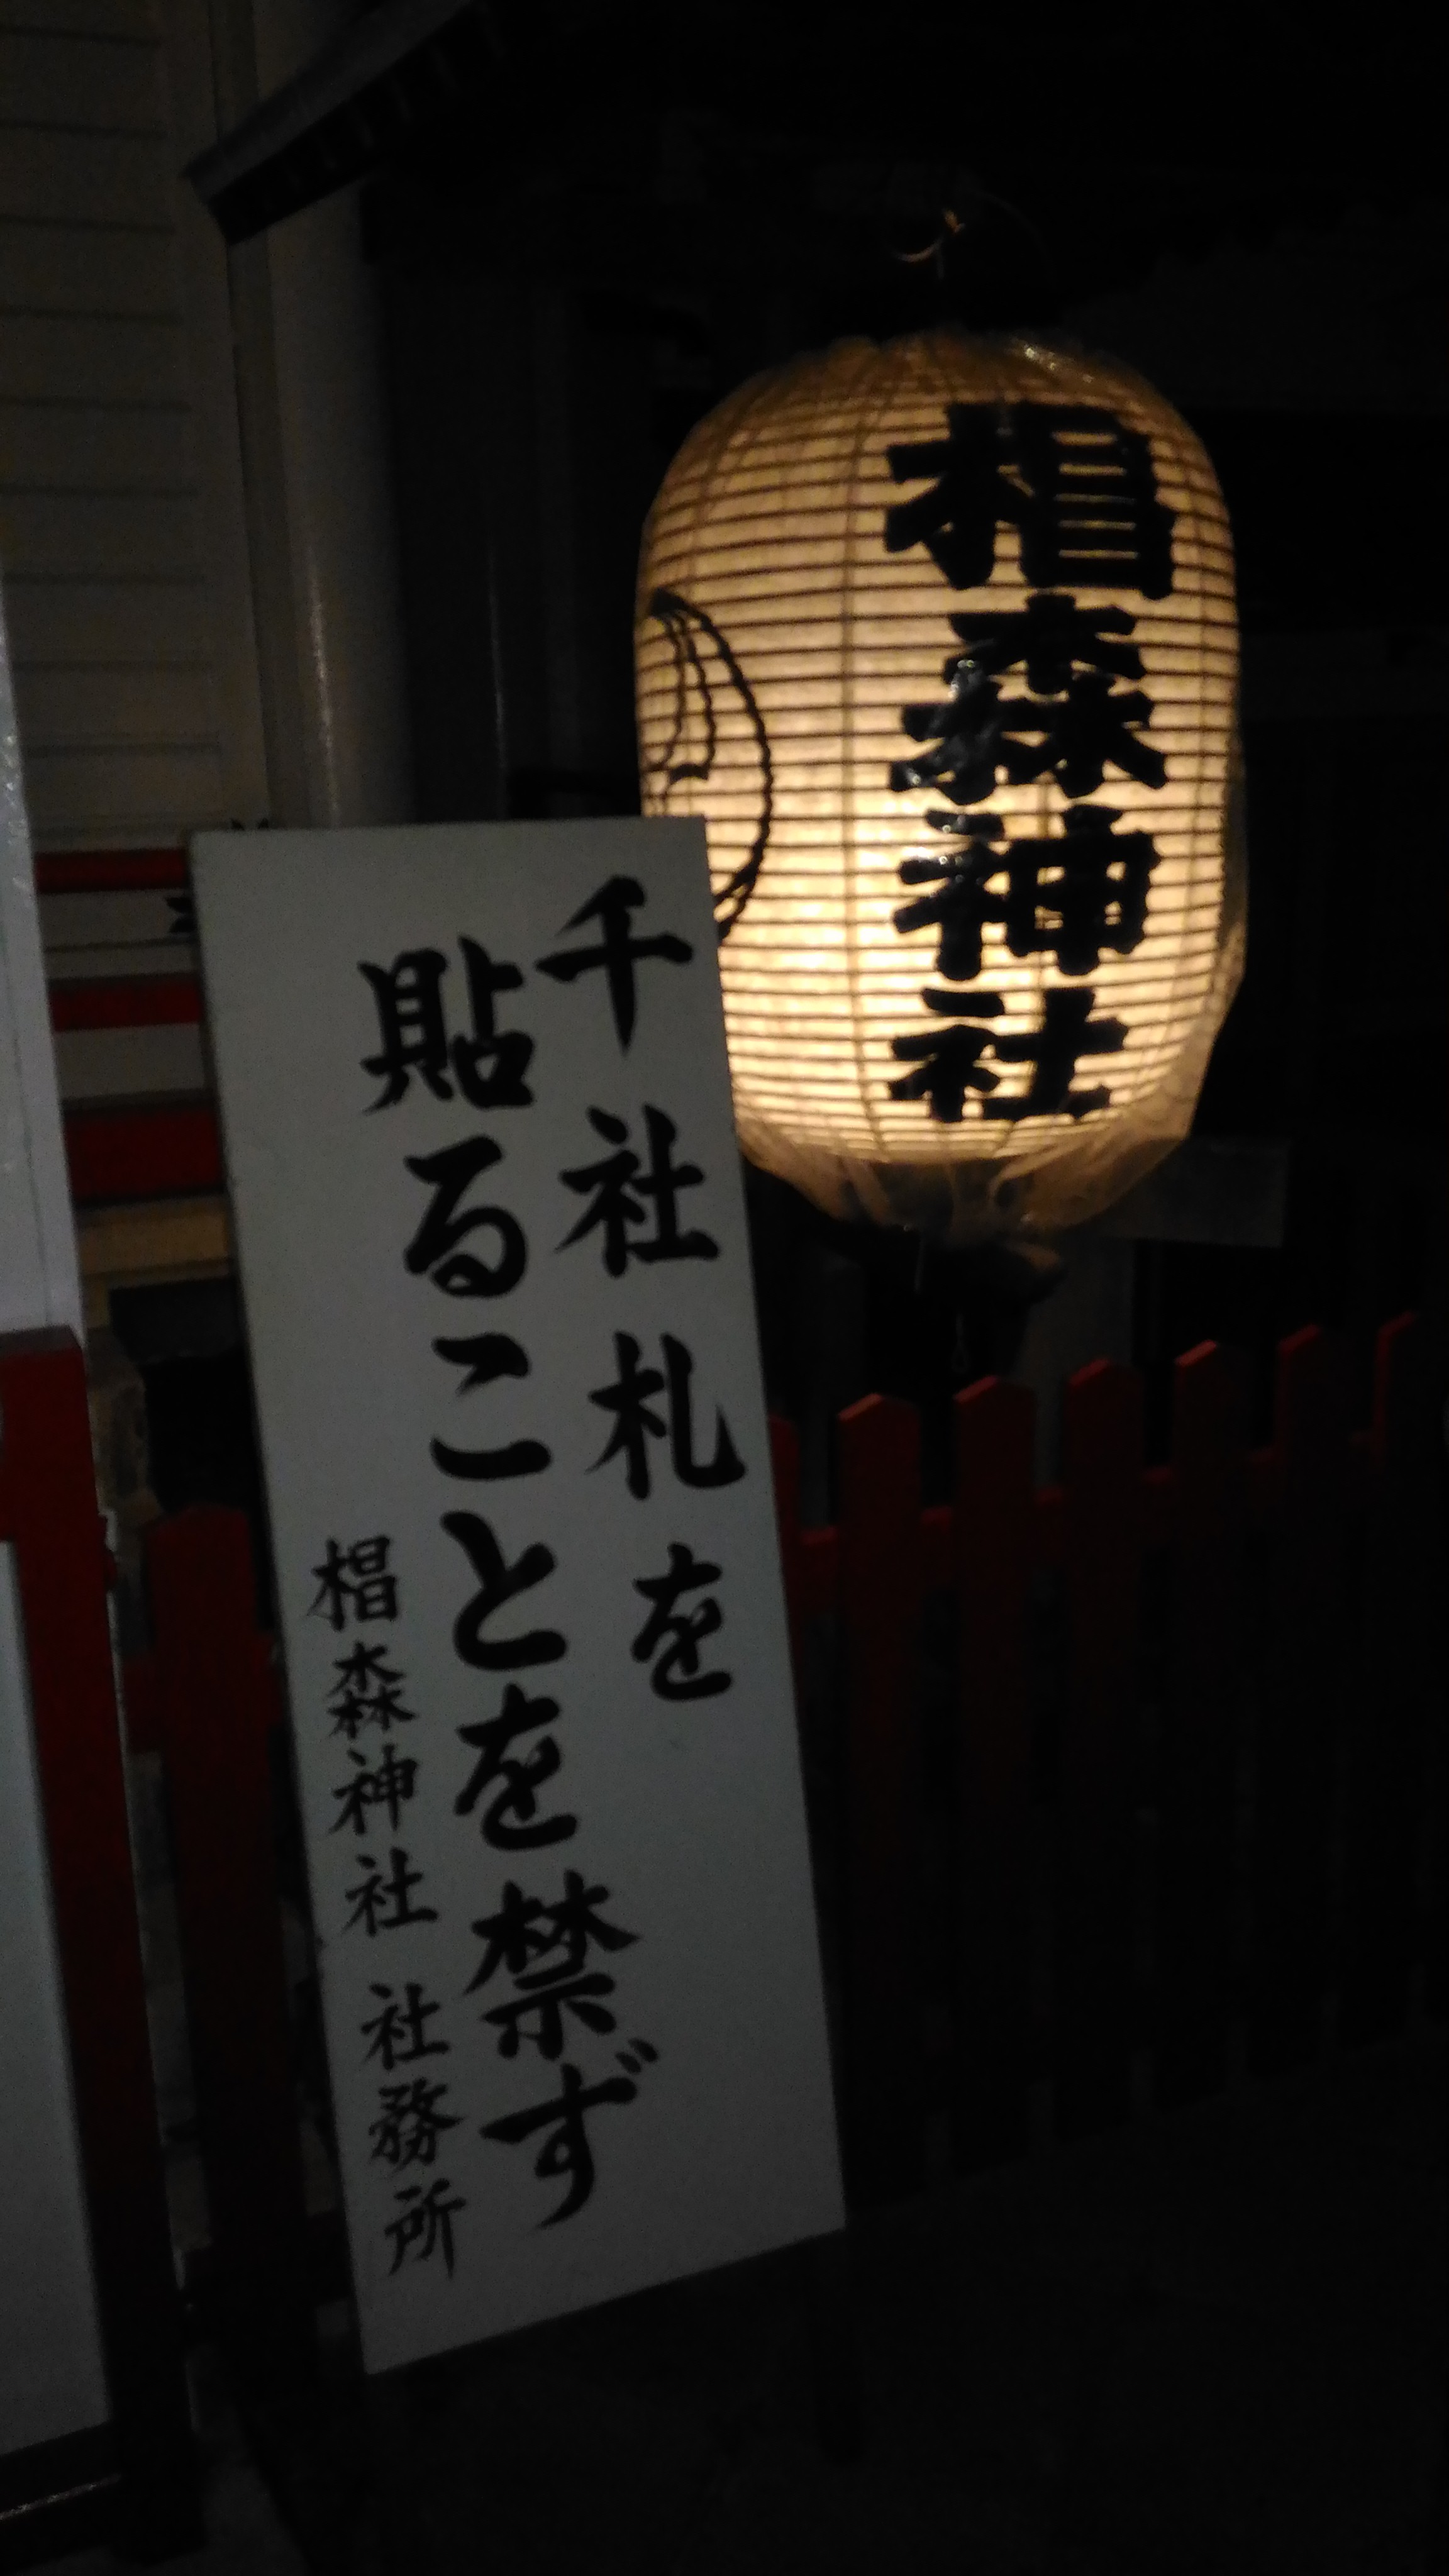 椙森神社
千社札を
貼ることを禁ず
椙森神社 社務所